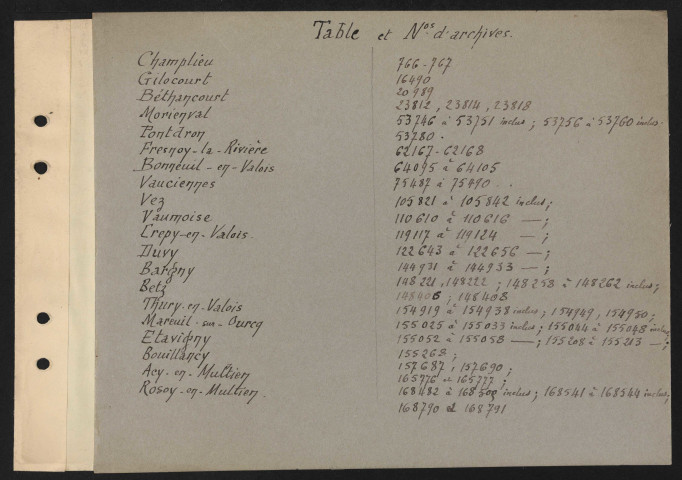 Table et Nos d'archives.
Champlieu
Gilocourt
Béthancourt
Morienval
Pontdron
Fresnoy-la-Rivière
Bonneuil-en-Valois
Vauciennes
Vez
Vaumoise
Crepy-en-Valois.
Duvy
Bargny
Betz
Thury-en-Valois
Mareuil-sur-Ourcq
Etavigny
Bouillancy
Acy-en-Multien
Rosoy-en-Multien.
766-767
16490
20989
23812, 23814, 23818
53746 à 53751 inclus; 53756 à 53760 inclus.
53780.
62167-62168
64095 à 64105
75487 à 75490.
105821 à 105842 inclus;
110610 à 110616 —;
119117 à 119124 —;
122643 à 122656 —;
144931 à 144933 —;
148221, 148222; 148258 à 148262 inclus;
148406; 148408
154919 à 154938 inclus; 154949, 154950;
155025 à 155033 inclus; 155044 à 155048 inclus;
155052 à 155058 —; 155208 à 155213 —;
155268;
157687, 157690;
165776 et 165777;
168482 à 168500 inclus; 168541 à 168544 inclus;
168790 et 168791